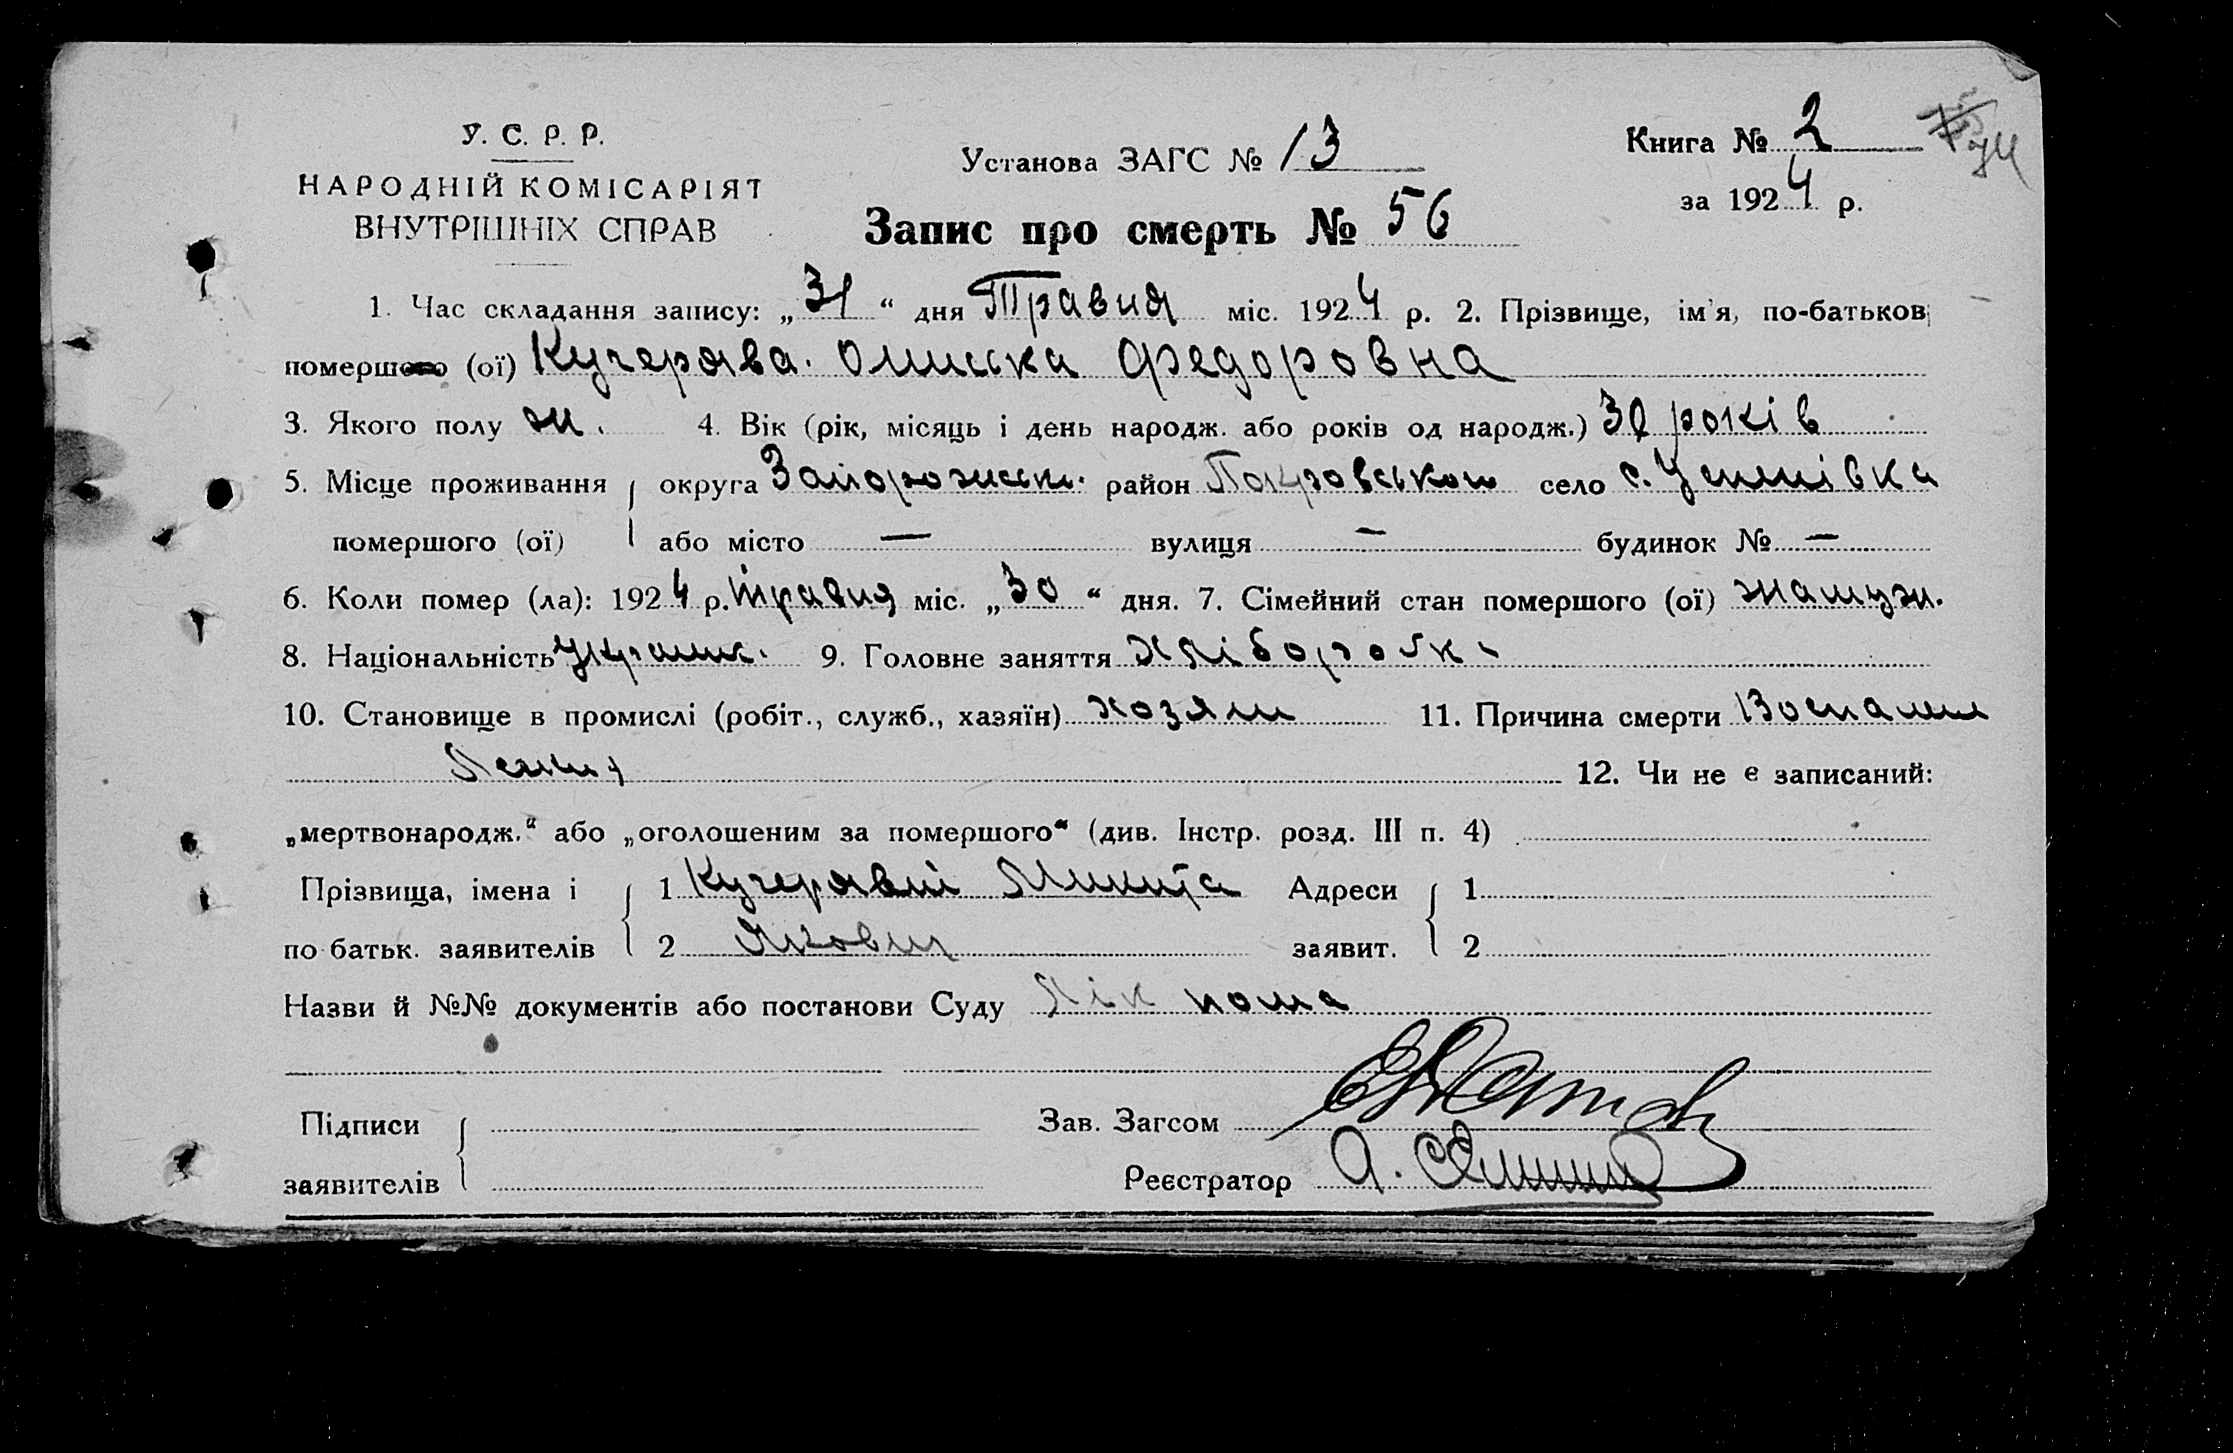 У. С. Р. Р.
НАРОДНІЙ КОМІСАРІЯТ
ВНУТРІШНІХ СПРАВ
Установа ЗАГС № 13
Книга № 2
за 1924 р.
Запис про смерть № 56
1. Час складання запису: „31“ дня Травня міс. 1924 р. 2. Прізвище, ім'я, по-батькові
помершого (ої) Кучерява. Федоровна
3. Якого полу ж. 4. Вік (рік, місяць і день народж. або років од народж.) років
5. Місце проживання округа район село с. Успенівка
помершого (ої) або місто — вулиця — будинок № —
6. Коли помер (ла): 1924 р. травня міс. „30“ дня. 7. Сімейний стан помершого (ої) замуж.
8. Національність 9. Головне заняття хліборобка
10. Становище в промислі (робіт., служб., хазяїн) хозяин 11. Причина смерти
12. Чи не є записаний:
„мертвонародж.“ або „оголошеним за помершого“ (див. Інстр. розд. III п. 4)
Прізвища, імена і 1 Кучерявий Микита Адреси 1
по батьк. заявителів 2 Якович заявит. 2
Назви й №№ документів або постанови Суду
Підписи
Зав. Загсом
заявителів
Реєстратор